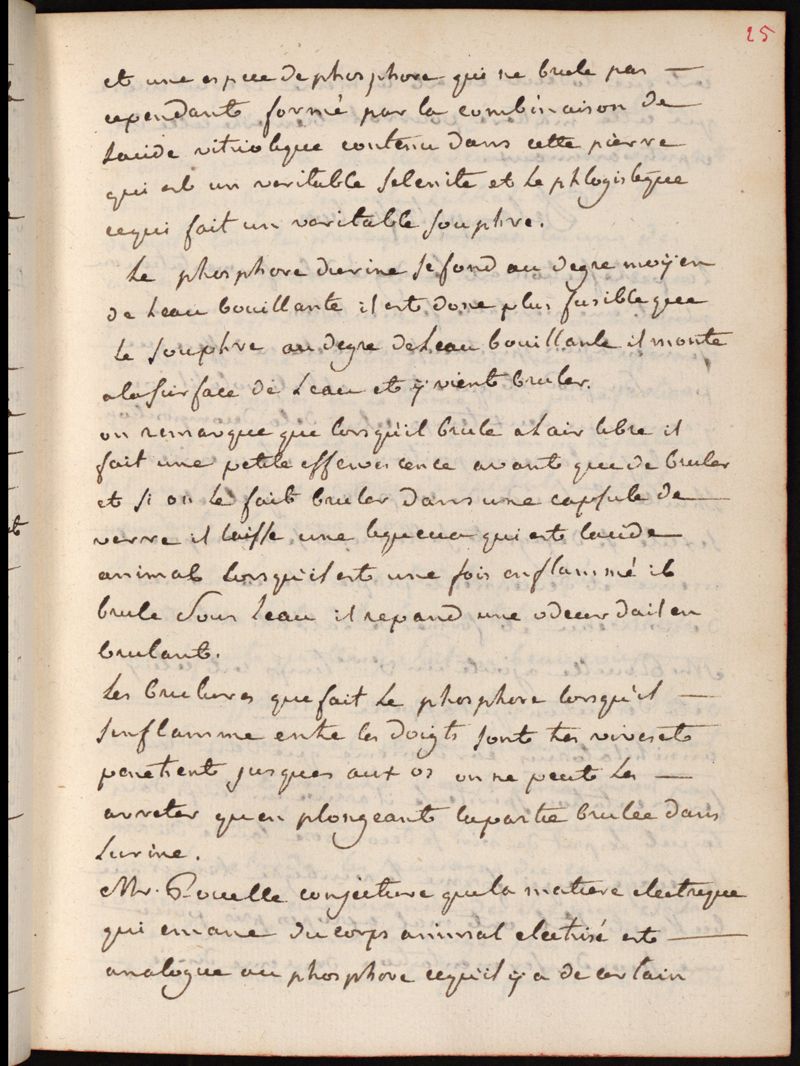 25
et une espece de phosphore qui ne brule pas —
cependant formé par la combinaison de
Lacide vitriolique contenu dans cette pierre
qui est un veritable selenite et le phlogistique
cequi fait un veritable souphre.
Le phosphore durine se fond au degre moyen
de Leau bouillante il est donc plus fusible que
Le souphre au degre de Leau bouillante il monte
a la surface de Leau et y vient bruler.
on remarque que lorsquil brule a Lair libre il
fait une petite effervescence avant que de bruler
et si on le fait bruler dans une capsule de —
verre il laisse une liqueur qui est lacide
animal lorsquil est une fois enflammé il
brule sous Leau il repand une odeur dail en
brulant.
Les brulures que fait Le phosphore lorsquil —
senflamme entre les doigts sont tres vives et
penetrent jusques aux os on ne peut les —
arreter quen plongeant lapartie brulee dans
Lurine.
Mr. Rouelle conjecture que la matiere electrique
qui emane du corps animal electrisé est —
analogue au phosphore cequil y a de certain